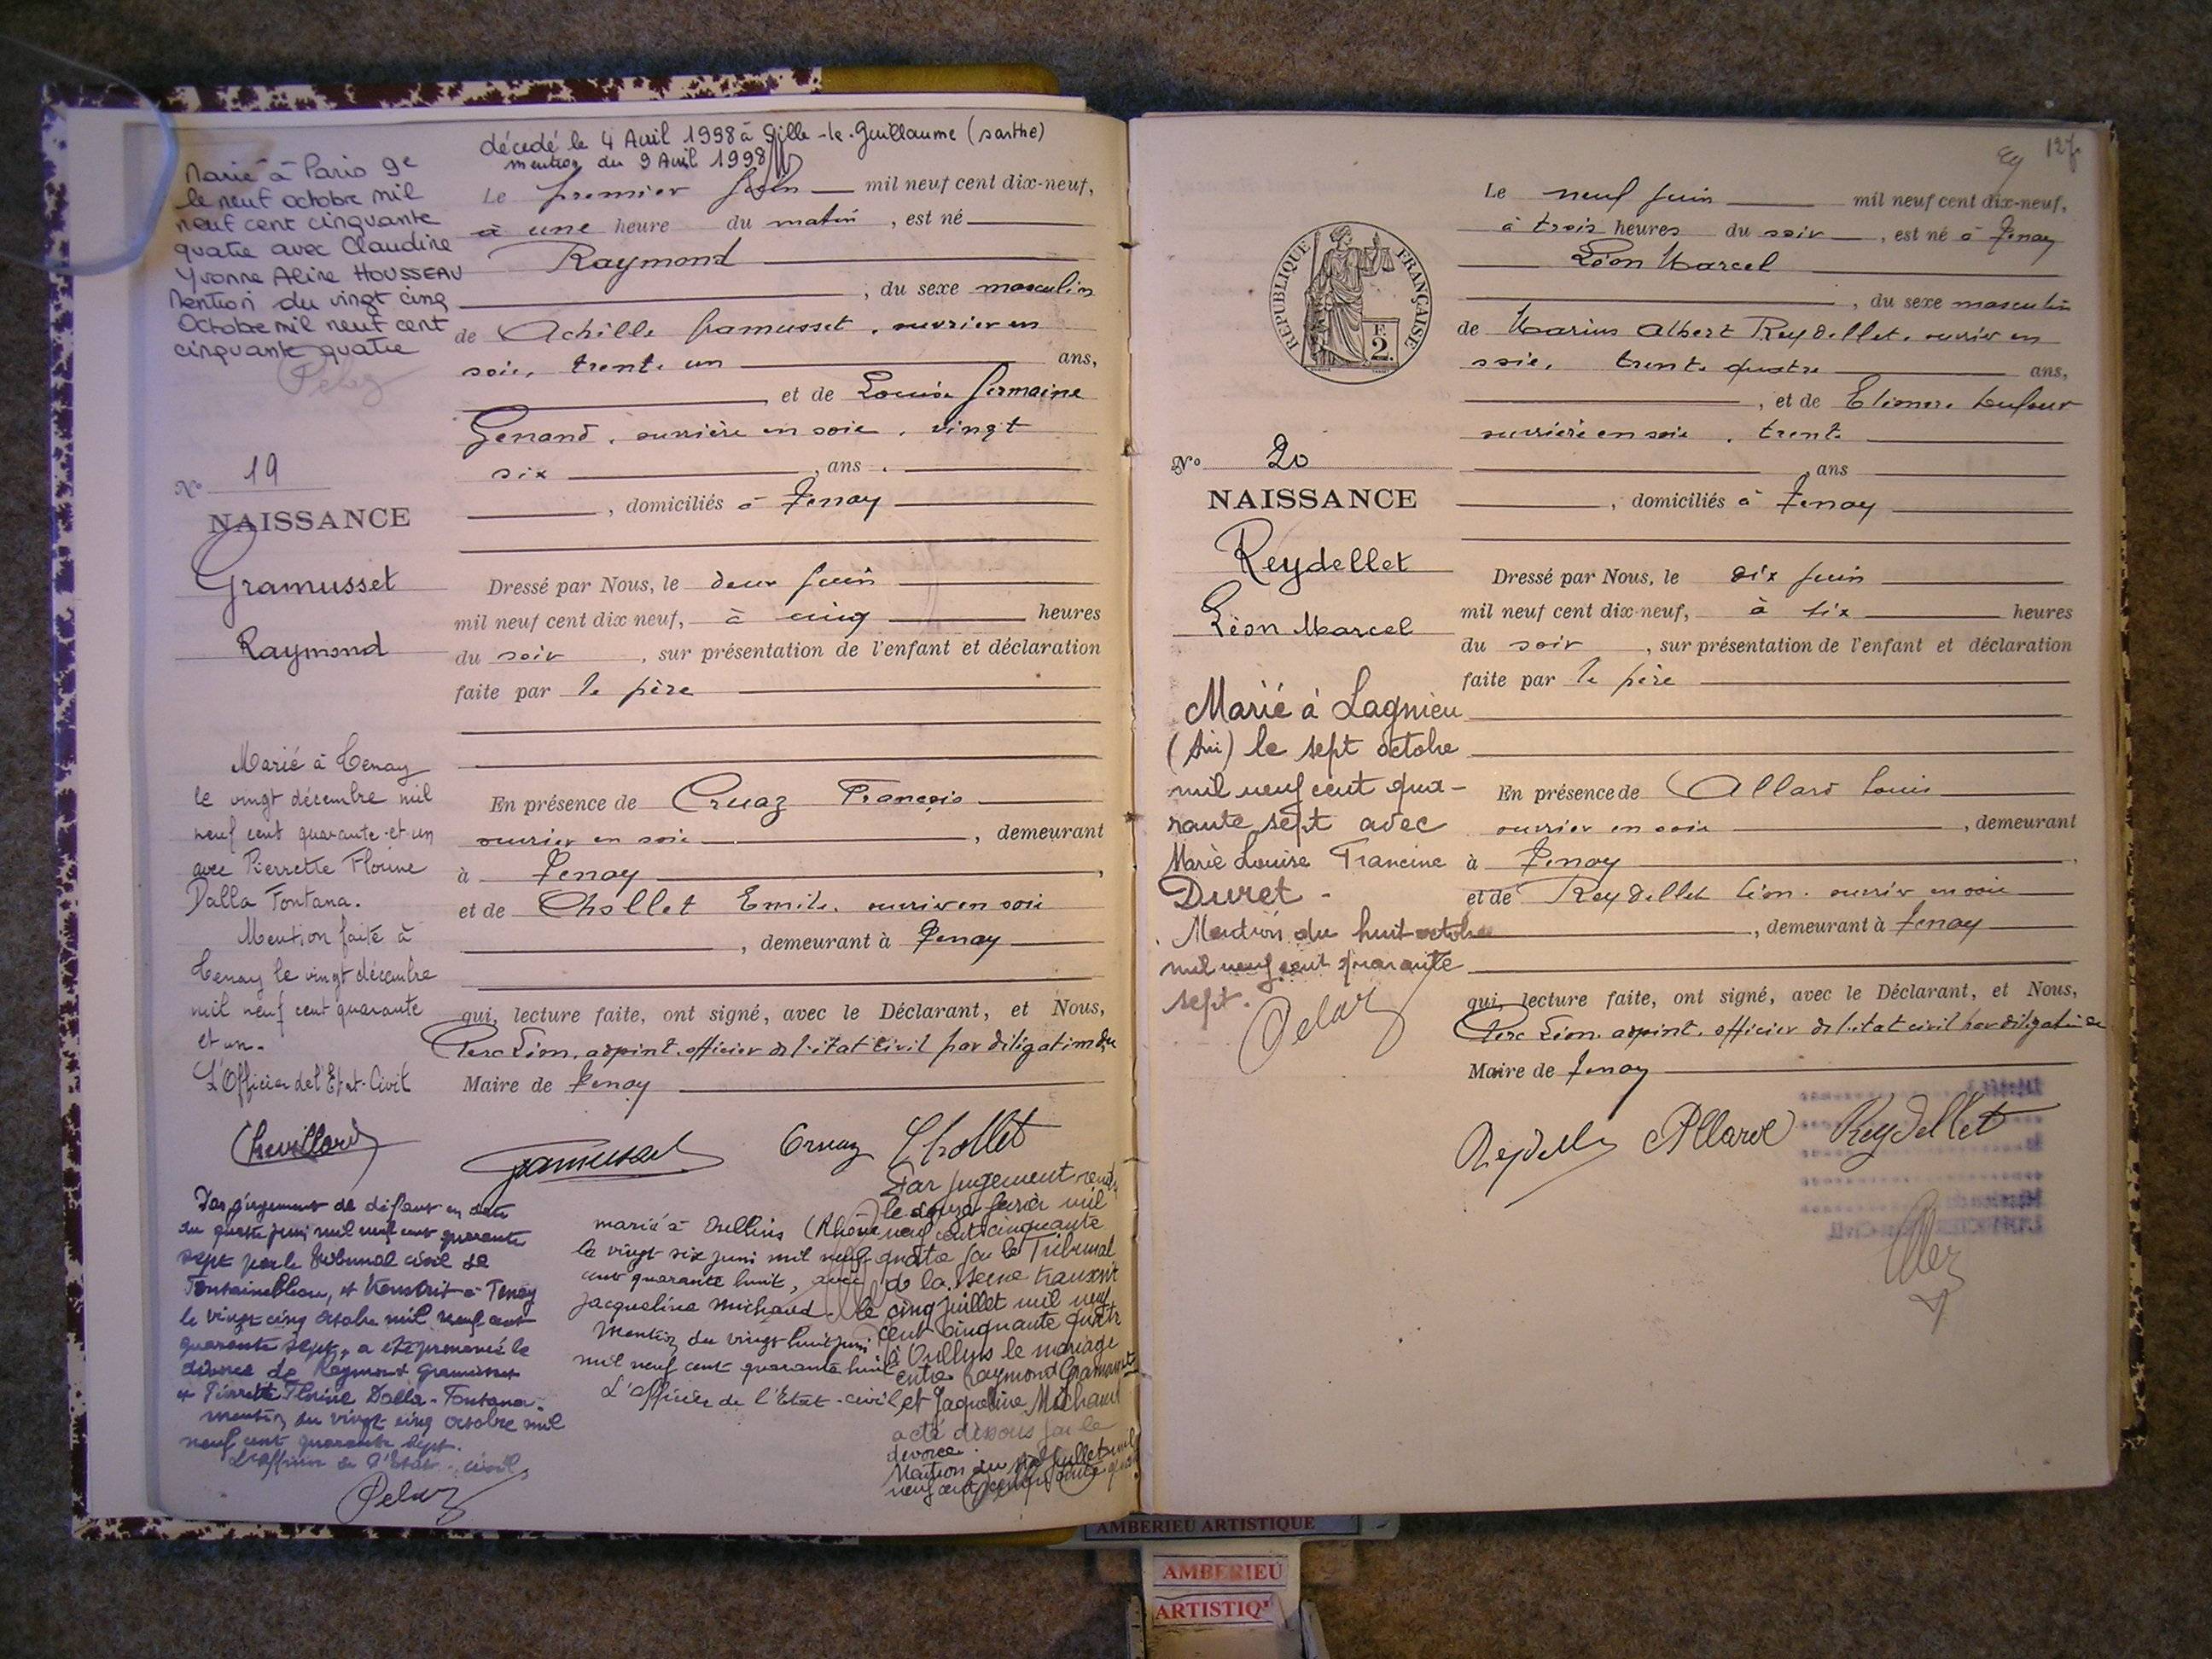 décédé le 4 Avril 1998 à Sillé-le-Guillaume (sarthe)
mention du 9 Avril 1998
Marié à Paris 9e
le neuf octobre mil
neuf cent cinquante
quatre avec Claudine
Yvonne Aline HOUSSEAU
Mention du vingt cinq
Octobre mil neuf cent
cinquante quatre
Pelaz
No 19
NAISSANCE
Gramusset
Raymond
Marié à Tenay
le vingt décembre mil
neuf cent quarante-et-un
avec Pierrette Florine
Dalla Fontana.
Mention faite à
Tenay le vingt décembre
mil neuf cent quarante
et un.
L'Officier de l'Etat-Civil
Chevillard
Le premier Juin mil neuf cent dix-neuf,
à une heure du matin, est né
Raymond
, du sexe masculin
de Achille Gramusset, ouvrier en
soie, trente un ans,
, et de Louise Germaine
Genand, ouvrière en soie, vingt
six , ans
, domiciliés à Tenay
Dressé par Nous, le deux Juin
mil neuf cent dix neuf, à cinq heures
du soir , sur présentation de l'enfant et déclaration
faite par le père
En présence de Cruaz François
ouvrier en soie , demeurant
à Tenay ,
et de Chollet Emile, ouvrier en soie
, demeurant à Tenay
qui, lecture faite, ont signé, avec le Déclarant, et Nous,
Perc Léon, adjoint, officier de l'état civil par délégation du
Maire de Tenay
Gramusset Cruaz Chollet
Par jugement de défaut en date
du quatre juin mil neuf cent quarante
sept par le tribunal civil de
Fontainebleau, et transcrit à Tenay
le vingt cinq octobre mil neuf cent
quarante sept, a été prononcé le
divorce de Raymond Gramusset
et Pierrette Florine Dalla-Fontana.
Mention du vingt cinq octobre mil
neuf cent quarante sept.
L'officier de l'Etat-civil,
Pelaz
marié à Oullins (Rhône)
le vingt six juin mil neuf
cent quarante huit, avec
Jacqueline Michaud.
Mention du vingt huit juin
mil neuf cent quarante huit
L'officier de l'Etat-civil
Par jugement rendu
le douze février mil
neuf cent cinquante
quatre par le Tribunal
de la Seine transcrit
le cinq juillet mil neuf
cent cinquante quatre
à Oullins le mariage
entre Raymond Gramusset
et Jacqueline Michaud
a été dissous par le
divorce.
Mention du juillet mil
neuf cent cinquante quatre
127
No 20
NAISSANCE
Reydellet
Léon Marcel
Marié à Lagnieu
(Ain) le sept octobre
mil neuf cent qua-
rante sept avec
Marie Louise Francine
Duret -
Mention du huit octobre
mil neuf cent quarante
sept.
Pelaz
RÉPUBLIQUE FRANÇAISE
F.
2.
Le neuf Juin mil neuf cent dix-neuf,
à trois heures du soir , est né à Tenay
Léon Marcel
, du sexe masculin
de Marius Albert Reydellet, ouvrier en
soie, trente quatre ans,
, et de Eléonore Dufour
ouvrière en soie, trente
, ans
, domiciliés à Tenay
Dressé par Nous, le dix Juin
mil neuf cent dix-neuf, à six heures
du soir , sur présentation de l'enfant et déclaration
faite par le père
En présence de Allard Louis
ouvrier en soie , demeurant
à Tenay ,
et de Reydellet Léon, ouvrier en soie
, demeurant à Tenay
qui, lecture faite, ont signé, avec le Déclarant, et Nous,
Perc Léon, adjoint, officier de l'état civil par délégation du
Maire de Tenay
Reydellet Allard Reydellet
AMBERIEU ARTISTIQUE
AMBERIEU
ARTISTIQ